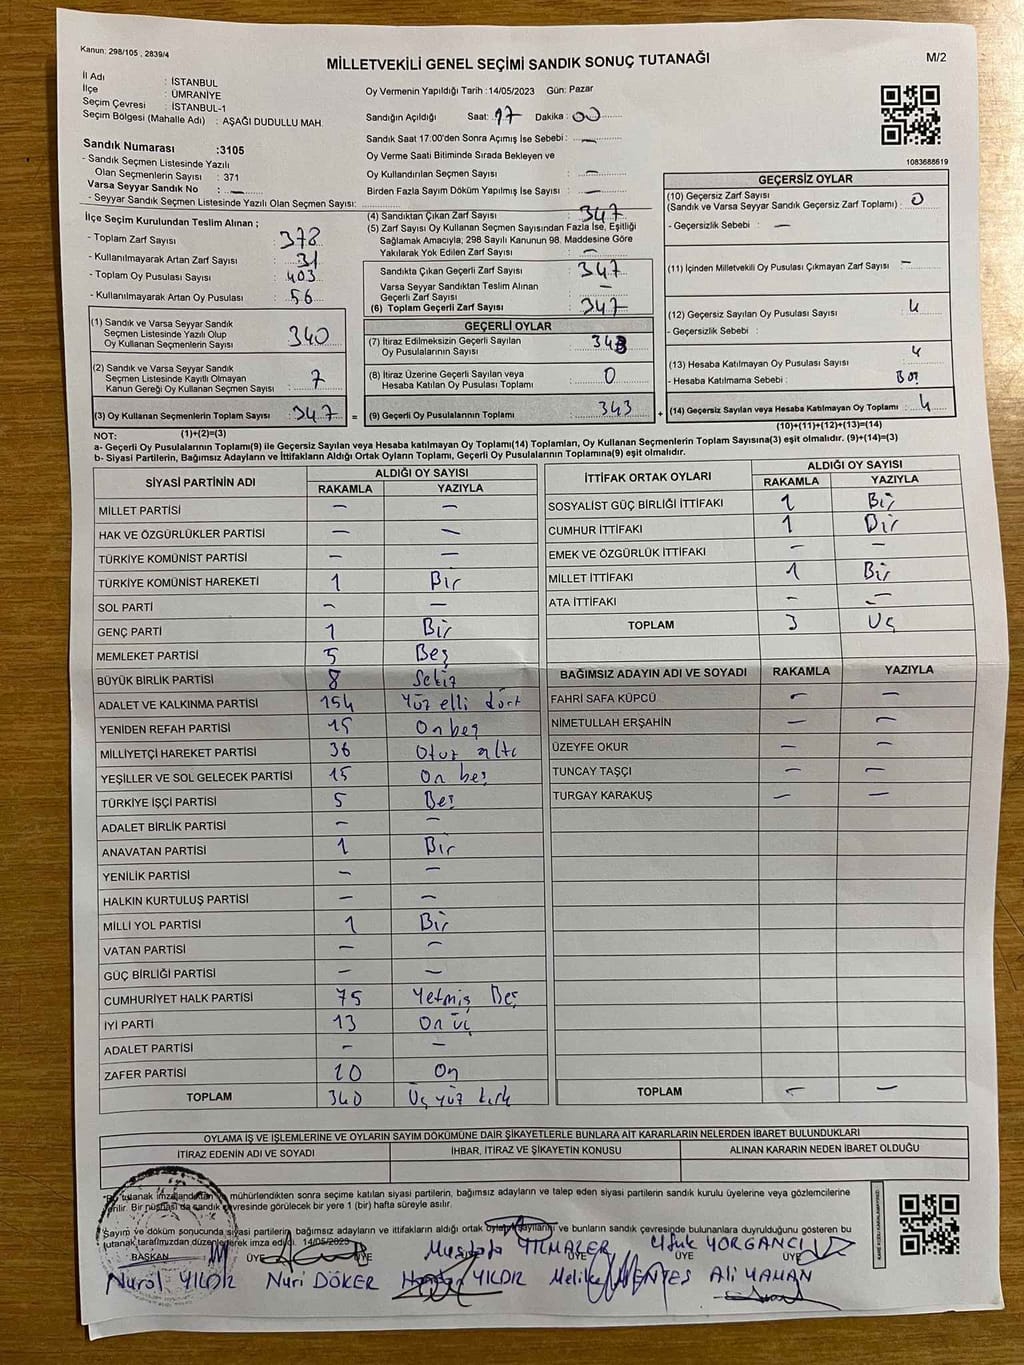 Kanun: 298/105 , 2839/4
MİLLETVEKİLİ GENEL SEÇİMİ SANDIK SONUÇ TUTANAĞI
M/2
İl Adı : İSTANBUL
İlçe : ÜMRANİYE
Seçim Çevresi : İSTANBUL-1
Seçim Bölgesi (Mahalle Adı) : AŞAĞI DUDULLU MAH.
Sandık Numarası :3105
- Sandık Seçmen Listesinde Yazılı
Olan Seçmenlerin Sayısı : 371
Varsa Seyyar Sandık No : —
- Seyyar Sandık Seçmen Listesinde Yazılı Olan Seçmen Sayısı:
Oy Vermenin Yapıldığı Tarih :14/05/2023 Gün: Pazar
Sandığın Açıldığı Saat: 17 Dakika : 00
Sandık Saat 17:00'den Sonra Açımış İse Sebebi : —
Oy Verme Saati Bitiminde Sırada Bekleyen ve
Oy Kullandırılan Seçmen Sayısı : —
Birden Fazla Sayım Döküm Yapılmış İse Sayısı : —
1083688619
İlçe Seçim Kurulundan Teslim Alınan ;
- Toplam Zarf Sayısı : 378
- Kullanılmayarak Artan Zarf Sayısı : 31
- Toplam Oy Pusulası Sayısı : 403
- Kullanılmayarak Artan Oy Pusulası : 56
(1) Sandık ve Varsa Seyyar Sandık
Seçmen Listesinde Yazılı Olup
Oy Kullanan Seçmenlerin Sayısı : 340
(2) Sandık ve Varsa Seyyar Sandık
Seçmen Listesinde Kayıtlı Olmayan
Kanun Gereği Oy Kullanan Seçmen Sayısı : 7
(3) Oy Kullanan Seçmenlerin Toplam Sayısı : 347 =
(1)+(2)=(3)
(4) Sandıktan Çıkan Zarf Sayısı : 347
(5) Zarf Sayısı Oy Kullanan Seçmen Sayısından Fazla İse, Eşitliği
Sağlamak Amacıyla; 298 Sayılı Kanunun 98. Maddesine Göre
Yakılarak Yok Edilen Zarf Sayısı : —
Sandıkta Çıkan Geçerli Zarf Sayısı : 347
Varsa Seyyar Sandıktan Teslim Alınan
Geçerli Zarf Sayısı : —
(6) Toplam Geçerli Zarf Sayısı : 347
GEÇERLİ OYLAR
(7) İtiraz Edilmeksizin Geçerli Sayılan
Oy Pusulalarının Sayısı : 343
(8) İtiraz Üzerine Geçerli Sayılan veya
Hesaba Katılan Oy Pusulası Toplamı : 0
(9) Geçerli Oy Pusulalarının Toplamı : 343 +
GEÇERSİZ OYLAR
(10) Geçersiz Zarf Sayısı
(Sandık ve Varsa Seyyar Sandık Geçersiz Zarf Toplamı) : 0
- Geçersizlik Sebebi : —
(11) İçinden Milletvekili Oy Pusulası Çıkmayan Zarf Sayısı : —
(12) Geçersiz Sayılan Oy Pusulası Sayısı : 4
- Geçersizlik Sebebi :
(13) Hesaba Katılmayan Oy Pusulası Sayısı : 4
- Hesaba Katılmama Sebebi : Boş
(14) Geçersiz Sayılan veya Hesaba Katılmayan Oy Toplamı : 4
(10)+(11)+(12)+(13)=(14)
NOT:
a- Geçerli Oy Pusulalarının Toplamı(9) ile Geçersiz Sayılan veya Hesaba katılmayan Oy Toplamı(14) Toplamları, Oy Kullanan Seçmenlerin Toplam Sayısına(3) eşit olmalıdır. (9)+(14)=(3)
b- Siyasi Partilerin, Bağımsız Adayların ve İttifakların Aldığı Ortak Oyların Toplamı, Geçerli Oy Pusulasının Toplamına(9) eşit olmalıdır.
SİYASİ PARTİNİN ADI ALDIĞI OY SAYISI
RAKAMLA YAZIYLA
MİLLET PARTİSİ — —
HAK VE ÖZGÜRLÜKLER PARTİSİ — —
TÜRKİYE KOMÜNİST PARTİSİ — —
TÜRKİYE KOMÜNİST HAREKETİ 1 Bir
SOL PARTİ — —
GENÇ PARTİ 1 Bir
MEMLEKET PARTİSİ 5 Beş
BÜYÜK BİRLİK PARTİSİ 8 Sekiz
ADALET VE KALKINMA PARTİSİ 154 Yüz elli dört
YENİDEN REFAH PARTİSİ 15 On beş
MİLLİYETÇİ HAREKET PARTİSİ 36 Otuz altı
YEŞİLLER VE SOL GELECEK PARTİSİ 15 On beş
TÜRKİYE İŞÇİ PARTİSİ 5 Beş
ADALET BİRLİK PARTİSİ — —
ANAVATAN PARTİSİ 1 Bir
YENİLİK PARTİSİ — —
HALKIN KURTULUŞ PARTİSİ — —
MİLLİ YOL PARTİSİ 1 Bir
VATAN PARTİSİ — —
GÜÇ BİRLİĞİ PARTİSİ — —
CUMHURİYET HALK PARTİSİ 75 Yetmiş Beş
İYİ PARTİ 13 On üç
ADALET PARTİSİ — —
ZAFER PARTİSİ 10 On
TOPLAM 340 Üç yüz kırk
İTTİFAK ORTAK OYLARI ALDIĞI OY SAYISI
RAKAMLA YAZIYLA
SOSYALİST GÜÇ BİRLİĞİ İTTİFAKI 1 Bir
CUMHUR İTTİFAKI 1 Bir
EMEK VE ÖZGÜRLÜK İTTİFAKI — —
MİLLET İTTİFAKI 1 Bir
ATA İTTİFAKI — —
TOPLAM 3 Üç
BAĞIMSIZ ADAYIN ADI VE SOYADI RAKAMLA YAZIYLA
FAHRİ SAFA KÜPCÜ — —
NİMETULLAH ERŞAHİN — —
ÜZEYFE OKUR — —
TUNCAY TAŞÇI — —
TURGAY KARAKUŞ — —
TOPLAM — —
OYLAMA İŞ VE İŞLEMLERİNE VE OYLARIN SAYIM DÖKÜMÜNE DAİR ŞİKAYETLERLE BUNLARA AİT KARARLARIN NELERDEN İBARET BULUNDUKLARI
İTİRAZ EDENİN ADI VE SOYADI İHBAR, İTİRAZ VE ŞİKAYETİN KONUSU ALINAN KARARIN NEDEN İBARET OLDUĞU
"Bu tutanak imzalandıktan ve mühürlendikten sonra seçime katılan siyasi partilerin, bağımsız adayların ve talep eden siyasi partilerin sandık kurulu üyelerine veya gözlemcilerine
verilir. Bir nüshası da sandık çevresinde görülecek bir yere 1 (bir) hafta süreyle asılır.
Sayım ve döküm sonucunda siyasi partilerin, bağımsız adayların ve ittifakların aldığı ortak oyların sayılarını ve bunların sandık çevresinde bulunanlara duyrulduğunu gösteren bu
tutanak tarafımızdan düzenlenerek imza edildi. 14/05/2023
BAŞKAN ÜYE ÜYE ÜYE ÜYE ÜYE
Mustafa YILMAZER Ufuk YORGANCI
Nurol YILDIZ Nuri DÖKER YILDIZ Melike MENTEŞ Ali YAMAN